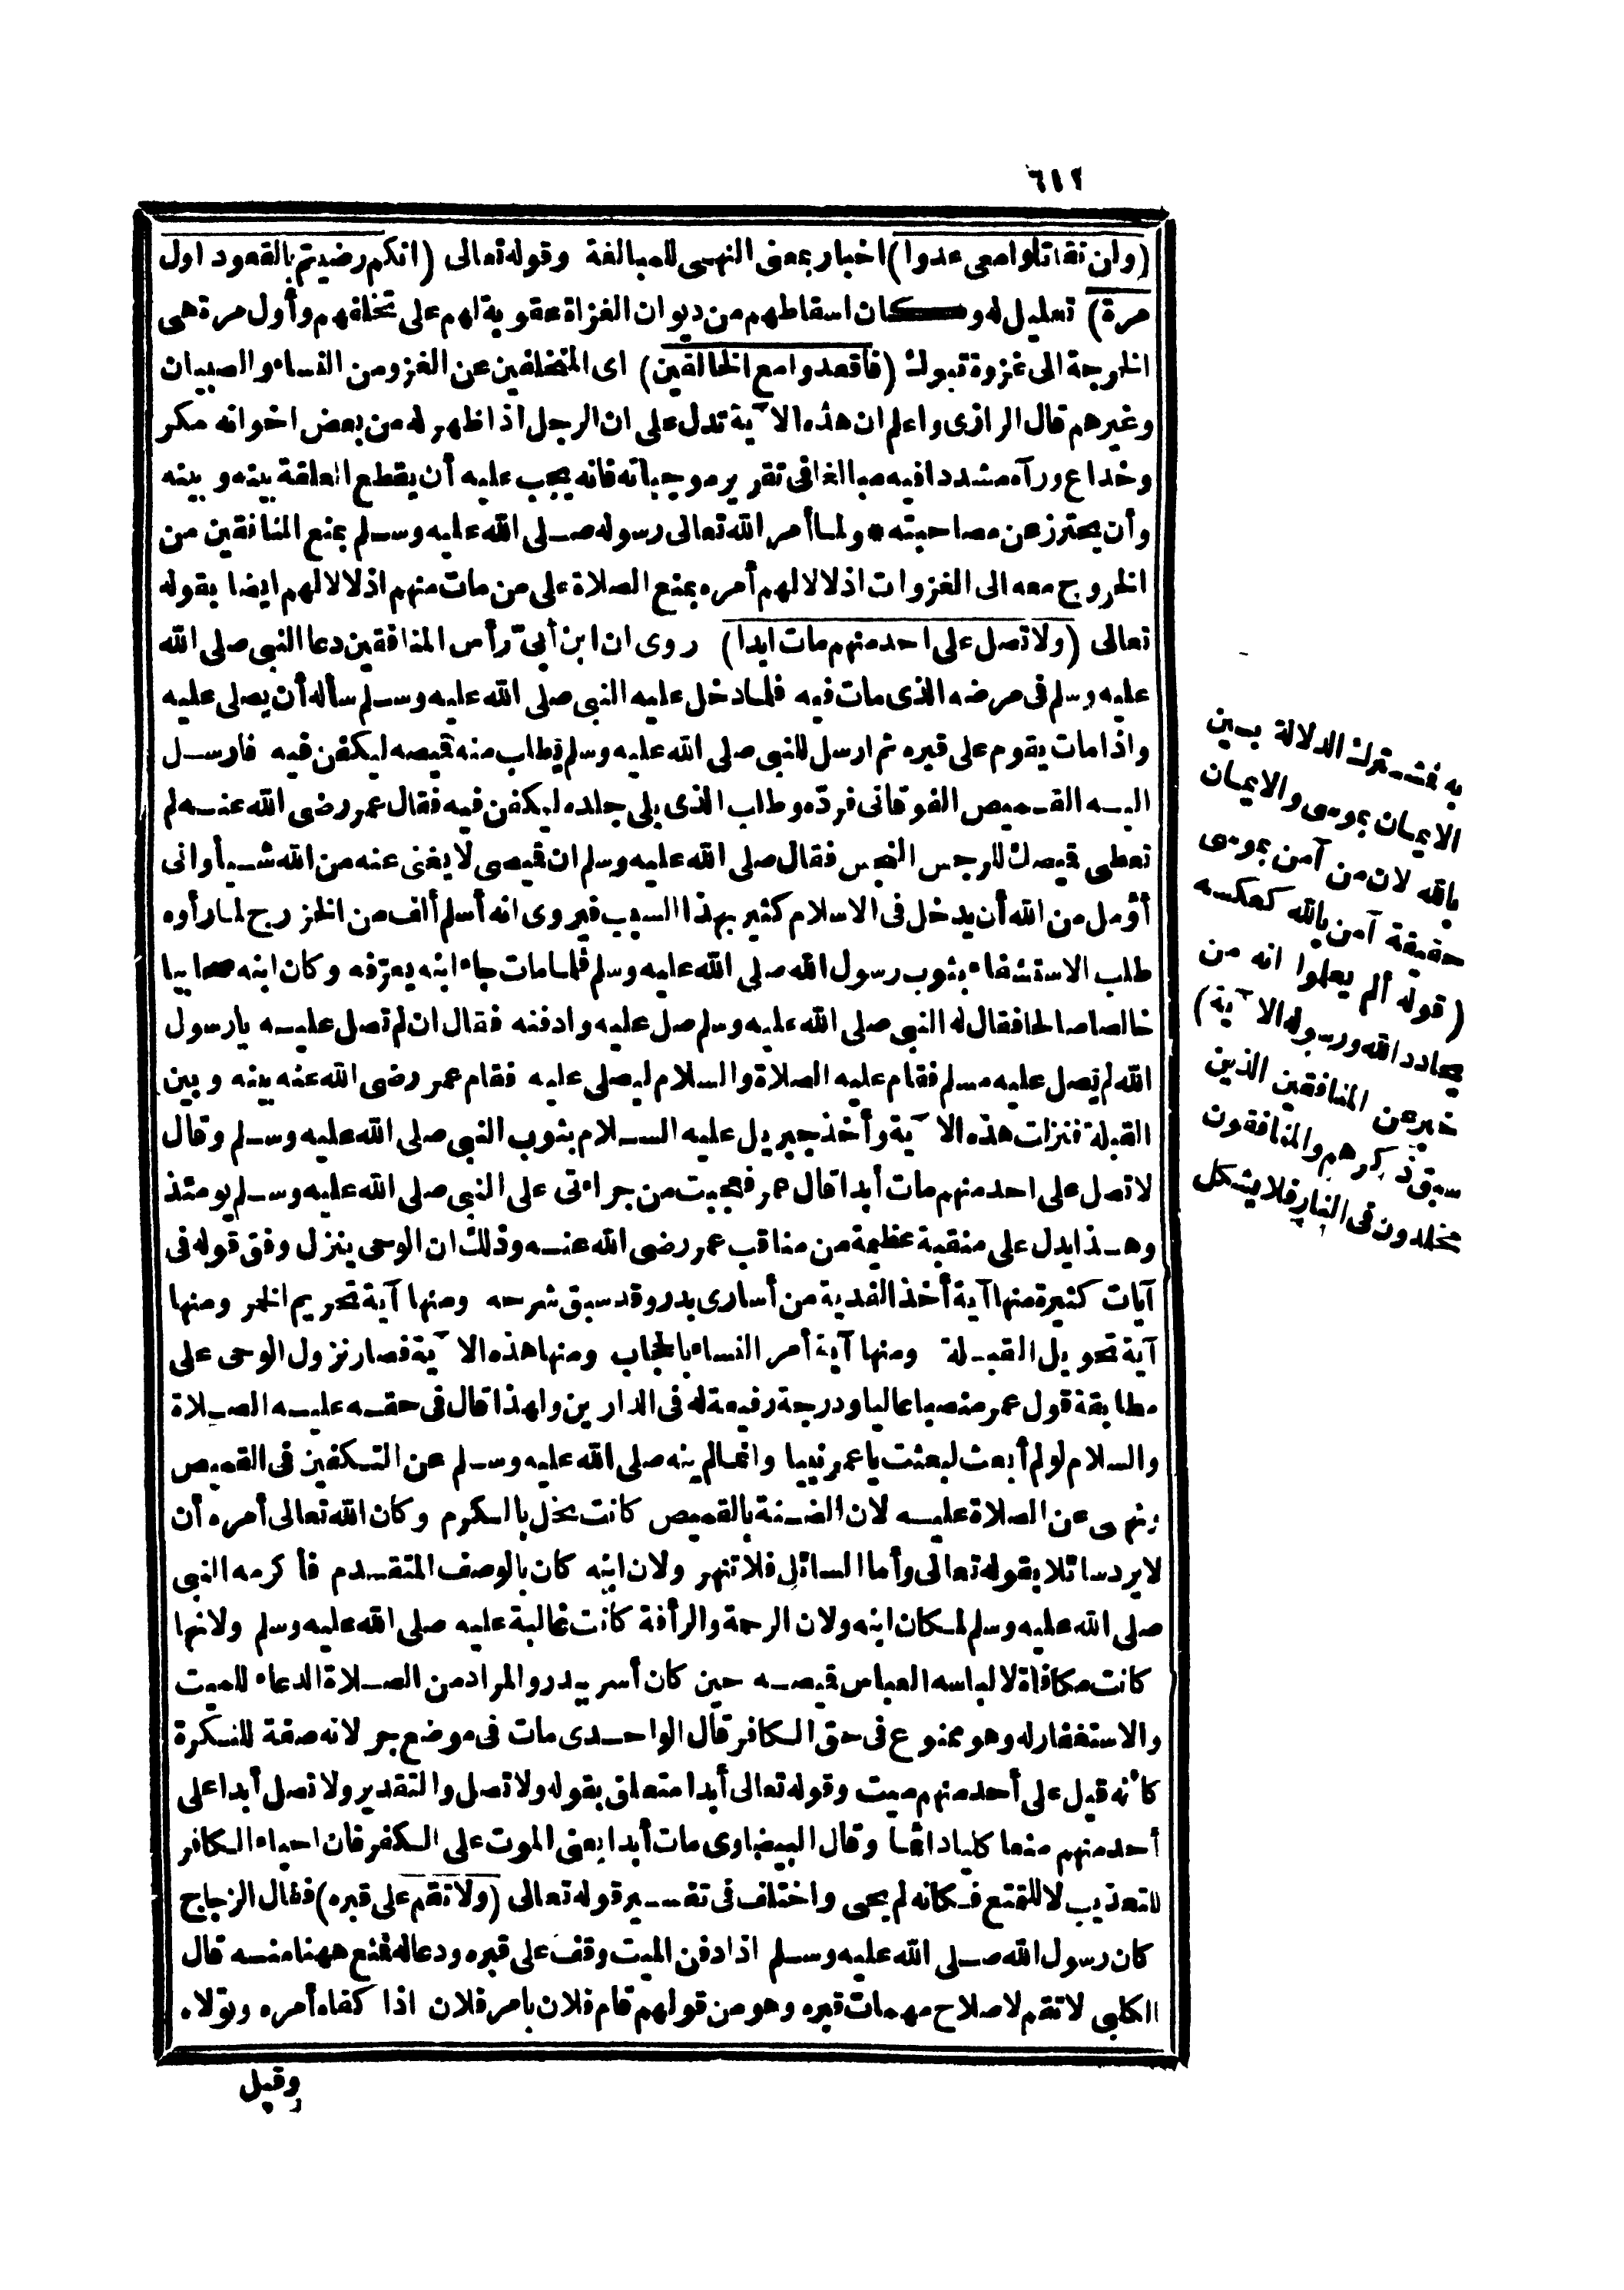 ٦١٢
(ولن تقاتلوا معى عدوا) اخبار بمعنى النهى للمبالغة وقوله تعالى (انكم رضيتم بالقعود اول
مرة) تعليل له وكان اسقاطهم من ديوان الغزاة عقوبة لهم على تخلفهم وأول مرة هى
الخرجة الى غزوة تبوك (فاقعدوا مع الخالفين) اى المتخلفين عن الغزو من النساء والصبيان
وغيرهم قال الرازى واعلم ان هذه الآية تدل على ان الرجل اذا ظهر له من بعض اخوانه مكر
وخداع ورآه مشددا فيه مبالغا فى تقرير موجباته فانه يجب عليه أن يقطع العلقة بينه وبينه
وأن يحترز عن مصاحبته * ولما أمر الله تعالى رسوله صلى الله عليه وسلم بمنع المنافقين من
الخروج معه الى الغزوات اذلالا لهم أمره بمنع الصلاة على من مات منهم اذلالا لهم ايضا بقوله
تعالى (ولا تصل على احد منهم مات ابدا) روى ان ابن أبىّ رأس المنافقين دعا النبى صلى الله
عليه وسلم فى مرضه الذى مات فيه فلما دخل عليه النبى صلى الله عليه وسلم سأله أن يصلى عليه
واذا مات يقوم على قبره ثم ارسل للنبى صلى الله عليه وسلم يطلب منه قيصه ليكفن فيه فارسل
اليه القميص الفوقانى فردّه وطلب الذى يلى جلده ليكفن فيه فقال عمر رضى الله عنه لم
تعطى قيصك للرجس النجس فقال صلى الله عليه وسلم ان قيصى لا يغنى عنه من الله شيأ وانى
أؤمل من الله أن يدخل فى الاسلام كثير بهذا السبب فيروى انه أسلم ألف من الخزرج لما رأوه
طلب الاستشفاء بثوب رسول الله صلى الله عليه وسلم فلما مات جاء ابنه يعرّفه وكان ابنه صحابيا
خالصا صالحا فقال له النبى صلى الله عليه وسلم صل عليه وادفنه فقال ان لم تصل عليه يا رسول
الله لم يصل عليه مسلم فقام عليه الصلاة والسلام ليصلى عليه فقام عمر رضى الله عنه بينه وبين
القبلة فنزلت هذه الآية وأخذ جبريل عليه السلام بثوب النبى صلى الله عليه وسلم وقال
لا تصل على احد منهم مات أبدا قال عمر فعجبت من جراءتى على النبى صلى الله عليه وسلم يومئذ
وهذا يدل على منقبة عظيمة من مناقب عمر رضى الله عنه وذلك ان الوحى ينزل وفق قوله فى
آيات كثيرة منها آية أخذ الفدية من أسارى بدر وقد سبق شرحه ومنها آية تحريم الخمر ومنها
آية تحويل القبلة ومنها آية أمر النساء بالحجاب ومنها هذه الآية فصار نزول الوحى على
مطابقة قول عمر منصبا عاليا ودرجة رفيعة له فى الدارين ولهذا قال فى حقه عليه الصلاة
والسلام لو لم أبعث لبعثت يا عمر نبيا وانما لم ينه صلى الله عليه وسلم عن التكفين فى القميص
ونهى عن الصلاة عليه لان الضنة بالقميص كانت تخل بالكرم وكان الله تعالى أمره أن
لا يرد سائلا بقوله تعالى وأما السائل فلا تنهر ولان ابنه كان بالوصف المتقدم فأكرمه النبى
صلى الله عليه وسلم لمكان ابنه ولان الرحمة والرأفة كانت غالبة عليه صلى الله عليه وسلم ولانها
كانت مكافاة لالباسه العباس قيصه حين كان أسر ببدر والمراد من الصلاة الدعاء للميت
والاستغفار له وهو ممنوع فى حق الكافر قال الواحدى مات فى موضع جر لانه صفة للنكرة
كأنه قيل على أحد منهم ميت وقوله تعالى أبدا متعلق بقوله ولا تصل والتقدير ولا تصل أبدا على
أحد منهم منعا كليا دائما وقال البيضاوى مات أبدا يعنى الموت على الكفر فان احياء الكافر
للتعذيب لا للتمتع فكانه لم يحى واختلف فى تفسير قوله تعالى (ولا تقم على قبره) فقال الزجاج
كان رسول الله صلى الله عليه وسلم اذا دفن الميت وقف على قبره ودعا له فمنع ههنا منه قال
الكلبى لا تقم لاصلاح مهمات قبره وهو من قولهم قام فلان بامر فلان اذا كفاه أمره وتولاه
وقيل
به فمشترك الدلالة بين
الايمان بموسى والايمان
بالله لان من آمن بموسى
حقيقة آمن بالله كعكسه
(قوله ألم يعلموا انه من
يحادد الله ورسوله الآية)
خبر عن المنافقين الذين
سبق ذكرهم والمنافقون
مخلدون فى النار فلا يشكل